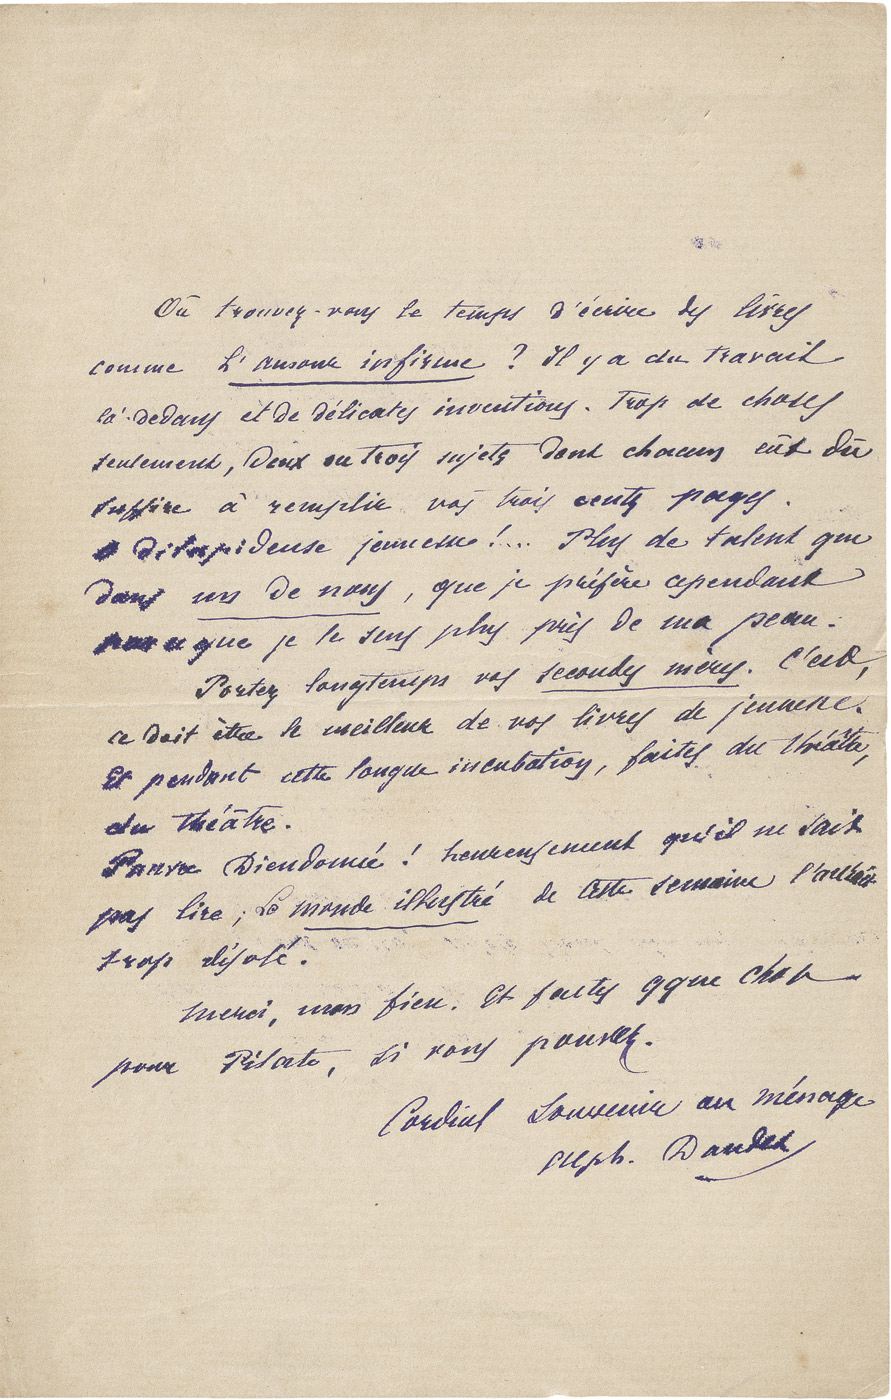 Où trouvez-vous le temps d'écrire des livres
comme L'amour infirme ? Il y a du travail
là-dedans et de délicates inventions. Trop de choses
seulement, deux ou trois sujets dont chacun eût dû
suffire à remplir vos trois cents pages.
Dilapideuse jeunesse !... Plus de talent que
dans un de nous, que je préfère cependant
que je le sens plus près de ma peau.
Portez longtemps vos secondes mères. C'est,
ce doit être le meilleur de vos livres de jeunesse.
Et pendant cette longue incubation, faites du théâtre,
du théâtre.
Pauvre Dieudonné ! heureusement qu'il ne sait
pas lire ; Le monde illustré de cette semaine l'aurait
trop désolé.
Merci, mon fieu. Et faites qque chose
pour Pilate, si vous pouvez.
Cordial souvenir au ménage
Alph. Daudet